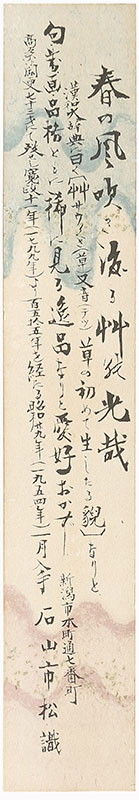 春の風吹き渡る艸の光哉
漢和大辞典曰く艸サウ(さう)草又音(テツ)草の初めて生したる貌なりと
句書画品格ともに稀に見る逸品なりと愛好おかず
高久靄崖七十三才にて歿す寛政十一年(一七九九年)より百五十五年を経たる昭和廿九年(一九五四年)一月入手
新潟市本町通七番町
石山市松識